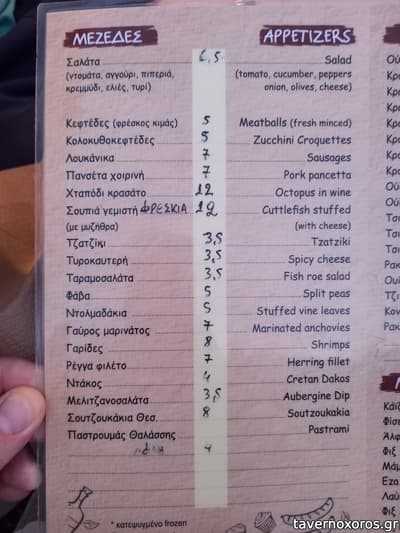 ΜΕΖΕΔΕΣ APPETIZERS
Σαλάτα 6,5 Salad
(ντομάτα, αγγούρι, πιπεριά, (tomato, cucumber, peppers
κρεμμύδι, ελιές, τυρί) onion, olives, cheese)
Κεφτέδες (φρέσκος κιμάς) 5 Meatballs (fresh minced)
Κολοκυθοκεφτέδες 5 Zucchini Croquettes
Λουκάνικα 7 Sausages
Πανσέτα χοιρινή 7 Pork pancetta
Χταπόδι κρασάτο 12 Octopus in wine
Σουπιά γεμιστή ΦΡΕΣΚΙΑ 12 Cuttlefish stuffed
(με μυζήθρα) (with cheese)
Τζατζίκι 3,5 Tzatziki
Τυροκαυτερή 3,5 Spicy cheese
Ταραμοσαλάτα 3,5 Fish roe salad
Φάβα 5 Split peas
Ντολμαδάκια 5 Stuffed vine leaves
Γαύρος μαρινάτος 7 Marinated anchovies
Γαρίδες 8 Shrimps
Ρέγγα φιλέτο 7 Herring fillet
Ντάκος 4 Cretan Dakos
Μελιτζανοσαλάτα 3,5 Aubergine Dip
Σουτζουκάκια Θεσ. 8 Soutzoukakia
Παστρουμάς Θαλάσσης Pastrami
4
* κατεψυγμένο frozen
tavernoxoros.gr